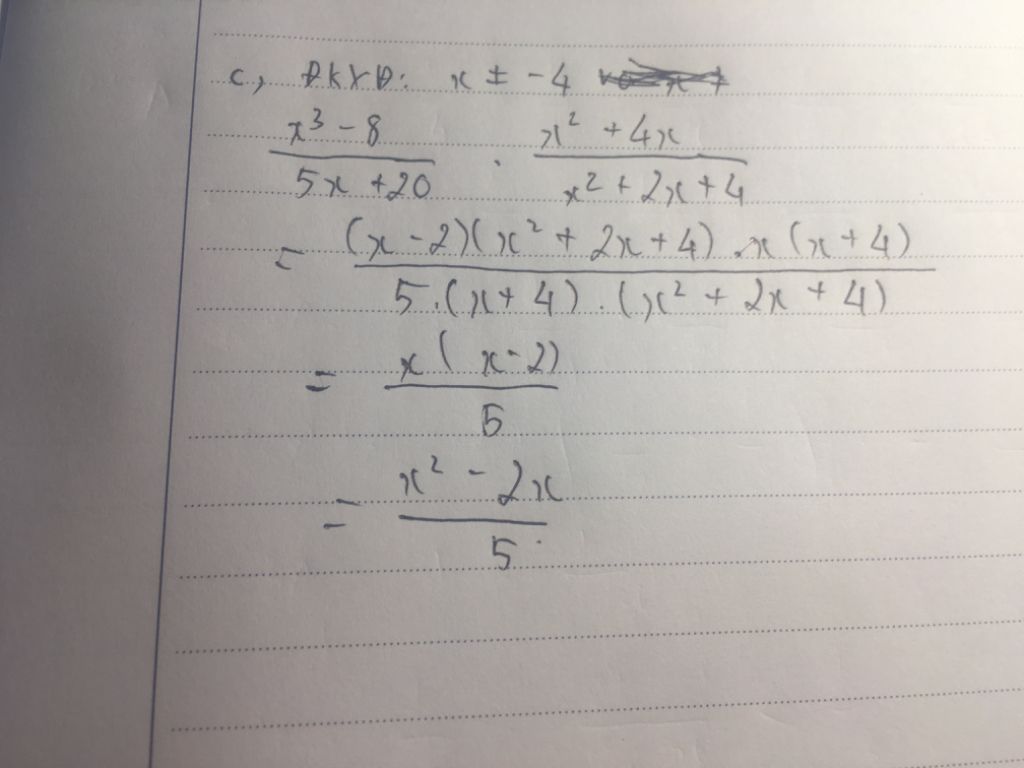 c, ĐKXĐ: x ≠ -4
x³ - 8 / 5x + 20 . x² + 4x / x² + 2x + 4
= (x - 2)(x² + 2x + 4) . x (x + 4) / 5.(x + 4) . (x² + 2x + 4)
= x ( x - 2) / 5
= x² - 2x / 5